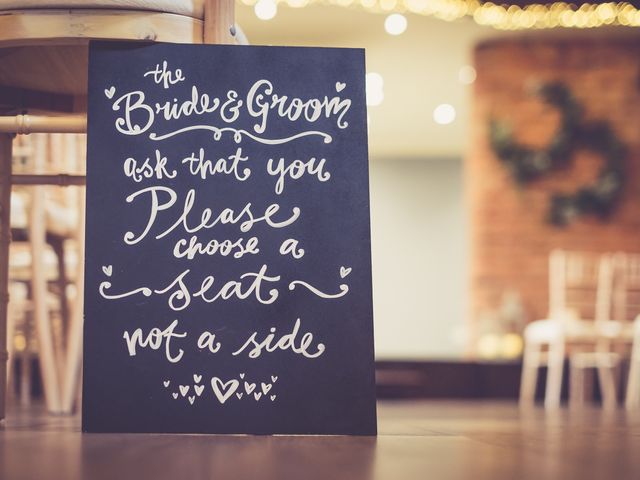 the
Bride & Groom
ask that you
Please
choose a
seat
not a side